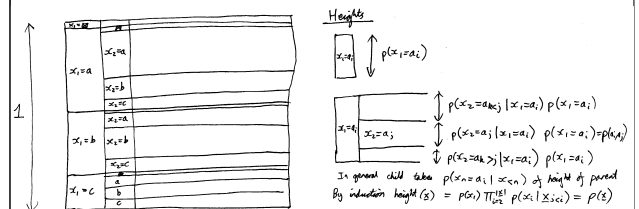 1
x₁=⊠
x₁=a
x₂=a
x₂=b
x₂=c
x₁=b
x₂=a
x₂=b
x₂=c
x₁=c
a
b
c
Heights
x₁=aᵢ
p(x₁=aᵢ)
x₁=aᵢ
x₂=aⱼ
p(x₂=aₖ<ⱼ | x₁=aᵢ) p(x₁=aᵢ)
p(x₂=aⱼ | x₁=aᵢ) p(x₁=aᵢ)=p(aᵢaⱼ)
p(x₂=aₖ>ⱼ | x₁=aᵢ) p(x₁=aᵢ)
In general child takes p(xₙ=aᵢ | x<ₙ) of height of parent
By induction height(x) = p(x₁) ∏ᵢ₌₂^|x| p(xᵢ | xⱼ<ᵢ) = P(x)